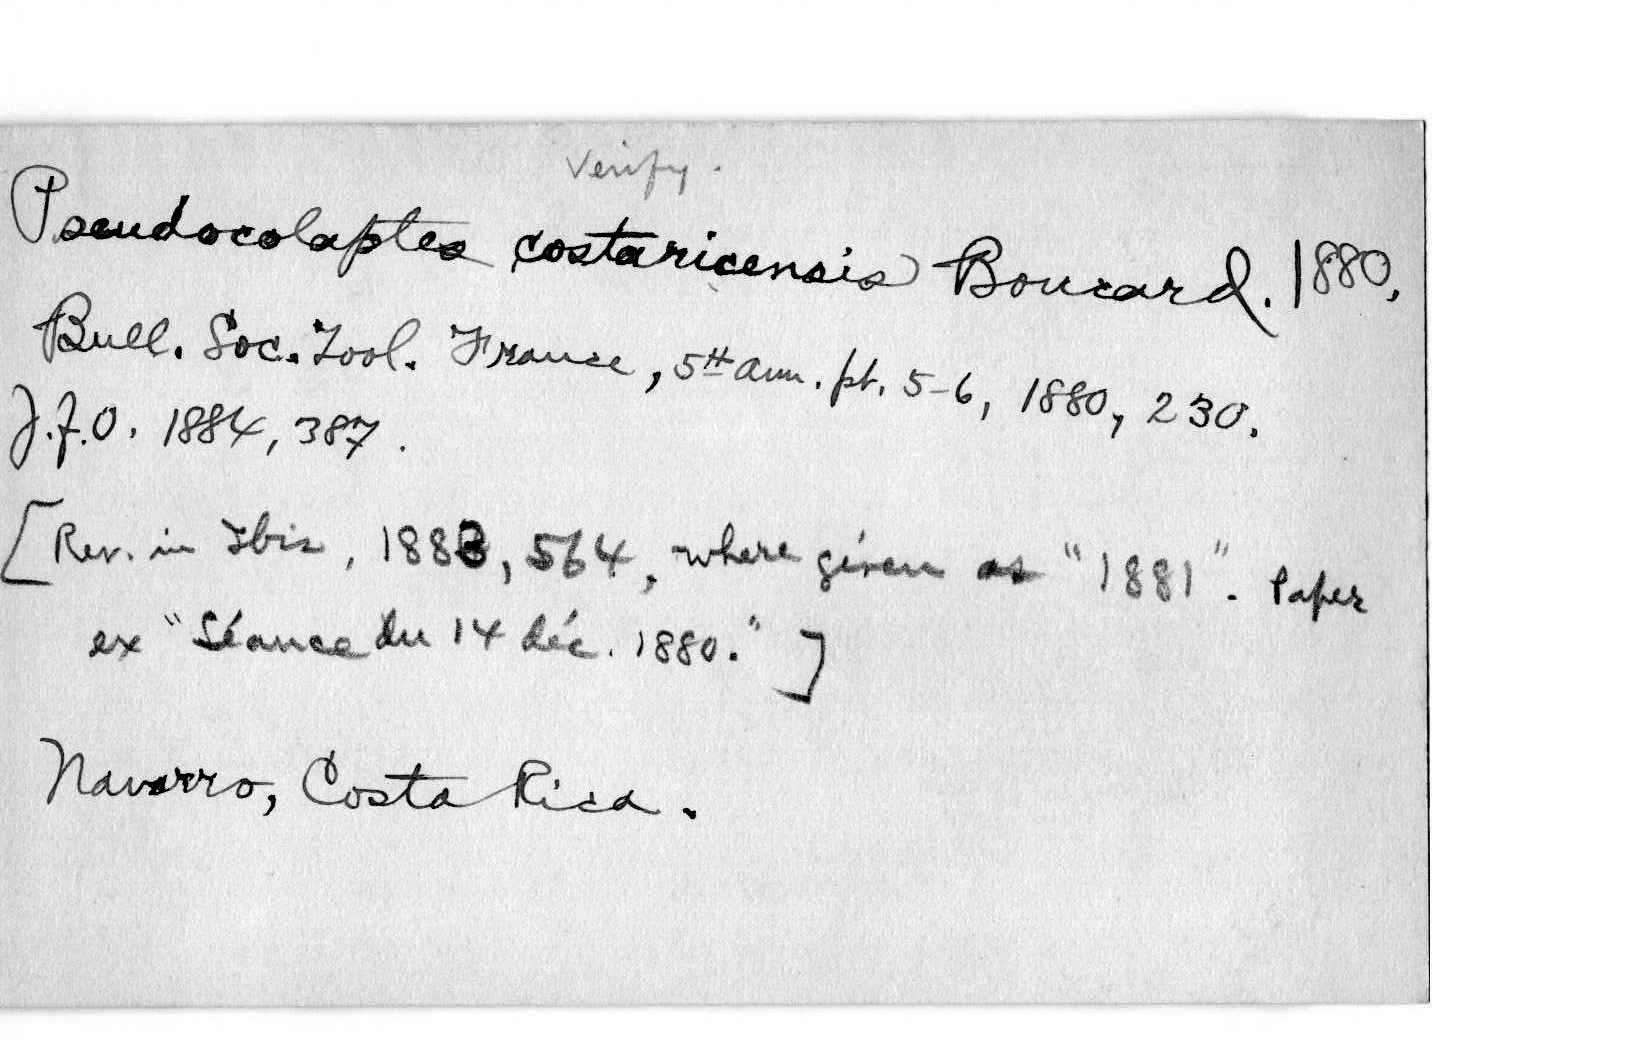 Verify.
Pseudocolaptes costaricensis Boucard. 1880.
Bull. Soc. Zool. France, 5th ann. pt. 5-6, 1880, 230.
J.f.O. 1884, 387.
[Rev. in Ibis, 1883, 564, where given as "1881". Paper
ex "Séance du 14 déc. 1880."]
Navarro, Costa Rica.